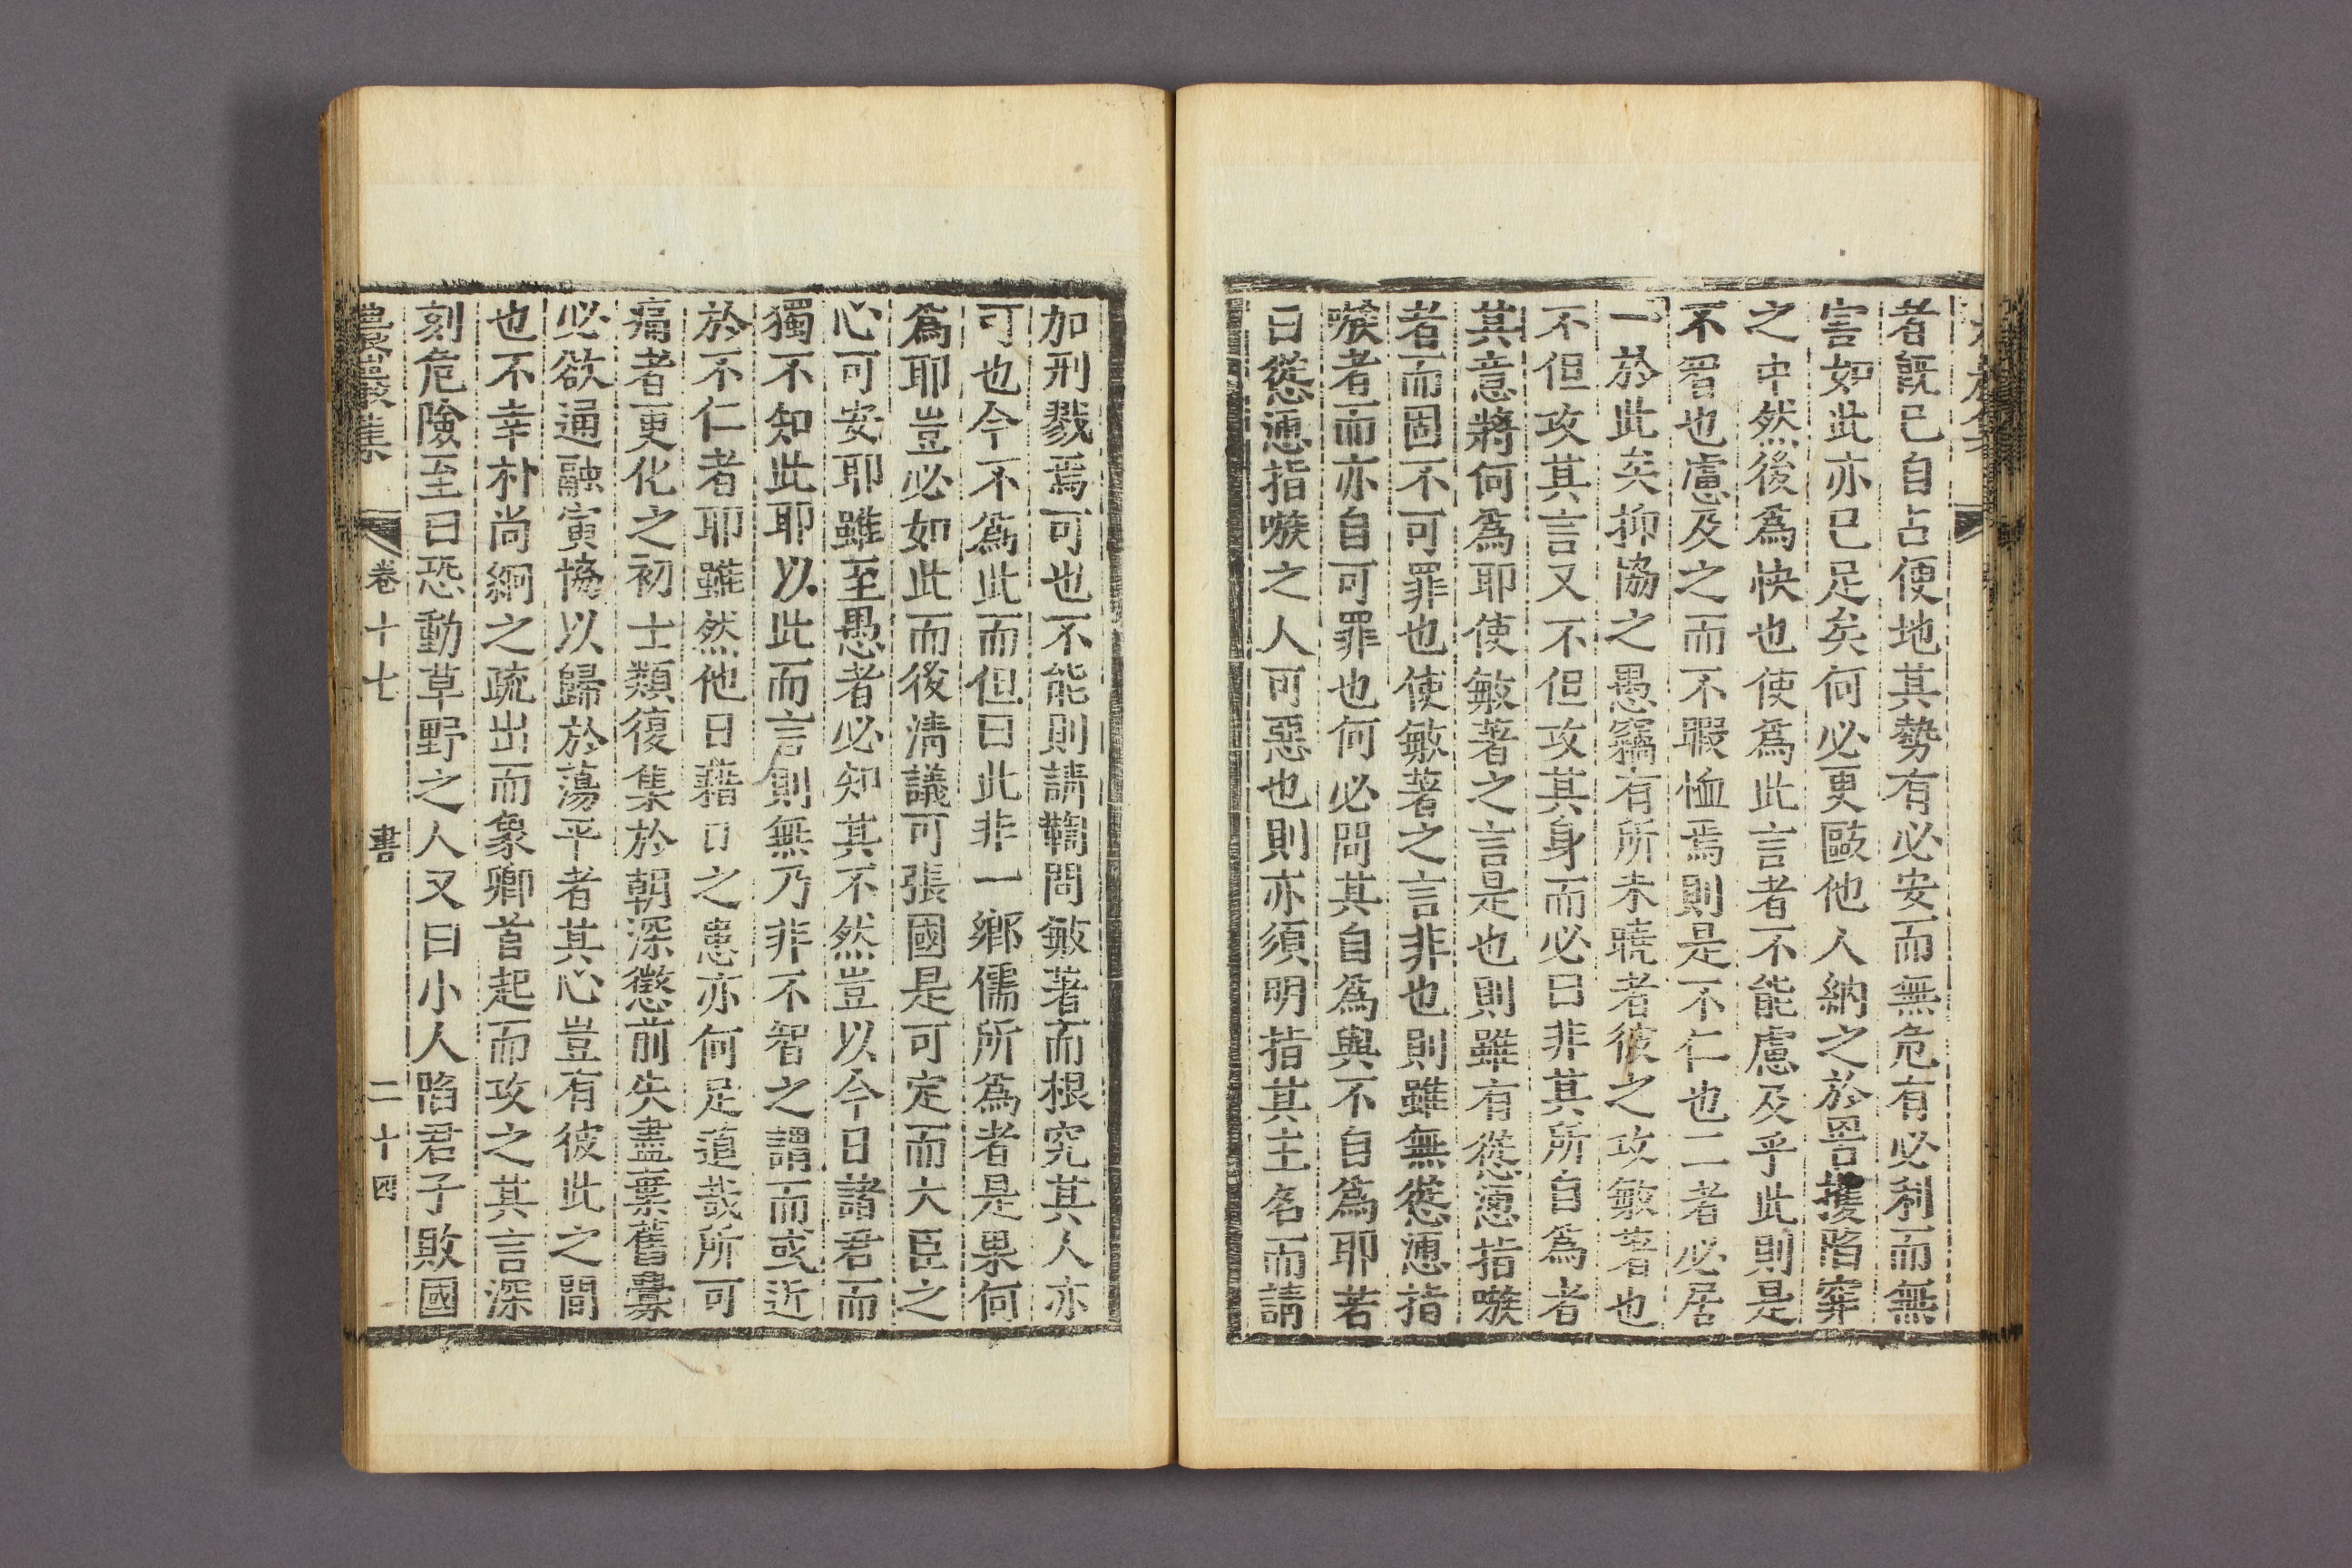 者旣已自占便地其勢有必安而無危有必利而無
害如此亦已足矣何必更敺他人納之於罟擭陷穽
之中然後爲快也使爲此言者不能慮及乎此則是
不智也慮及之而不暇恤焉則是不仁也二者必居
一於此矣抑協之愚竊有所未曉者彼之攻敏著也
不但攻其言又不但攻其身而必曰非其所自爲者
其意將何爲耶使敏著之言是也則雖有慫慂指嗾
者而固不可罪也使敏著之言非也則雖無慫慂指
嗾者而亦自可罪也何必問其自爲與不自爲耶若
曰慫慂指嗾之人可惡也則亦須明指其主名而請
加刑戮焉可也不能則請鞫問敏著而根究其人亦
可也今不爲此而但曰此非一鄕儒所爲者是果何
爲耶豈必如此而後淸議可張國是可定而大臣之
心可安耶雖至愚者必知其不然豈以今日諸君而
獨不知此耶以此而言則無乃非不智之謂而或近
於不仁者耶雖然他日藉口之患亦何足道哉所可
痛者更化之初士類復集於朝深懲前失盡棄舊釁
必欲通融寅協以歸於蕩平者其心豈有彼此之間
也不幸朴尙絅之疏出而象卿首起而攻之其言深
刻危險至曰恐動草野之人又曰小人陷君子敗國
農巖集 卷十七 書 二十四